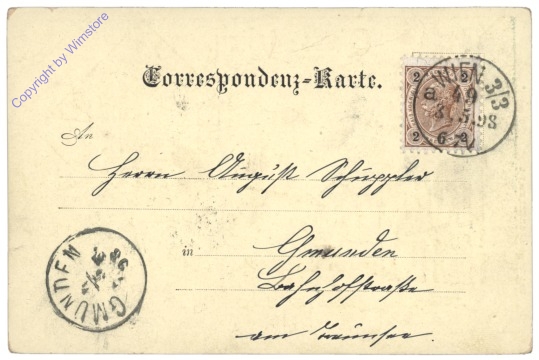 Copyright by Wimstore
Correspondenz-Karte.
2 2
WIEN 3/3
a 49
5.98
2 6 2
An
Herrn August Schuppler
in Gmunden
Bahnhofstraße
am Traunsee.
GMUNDEN